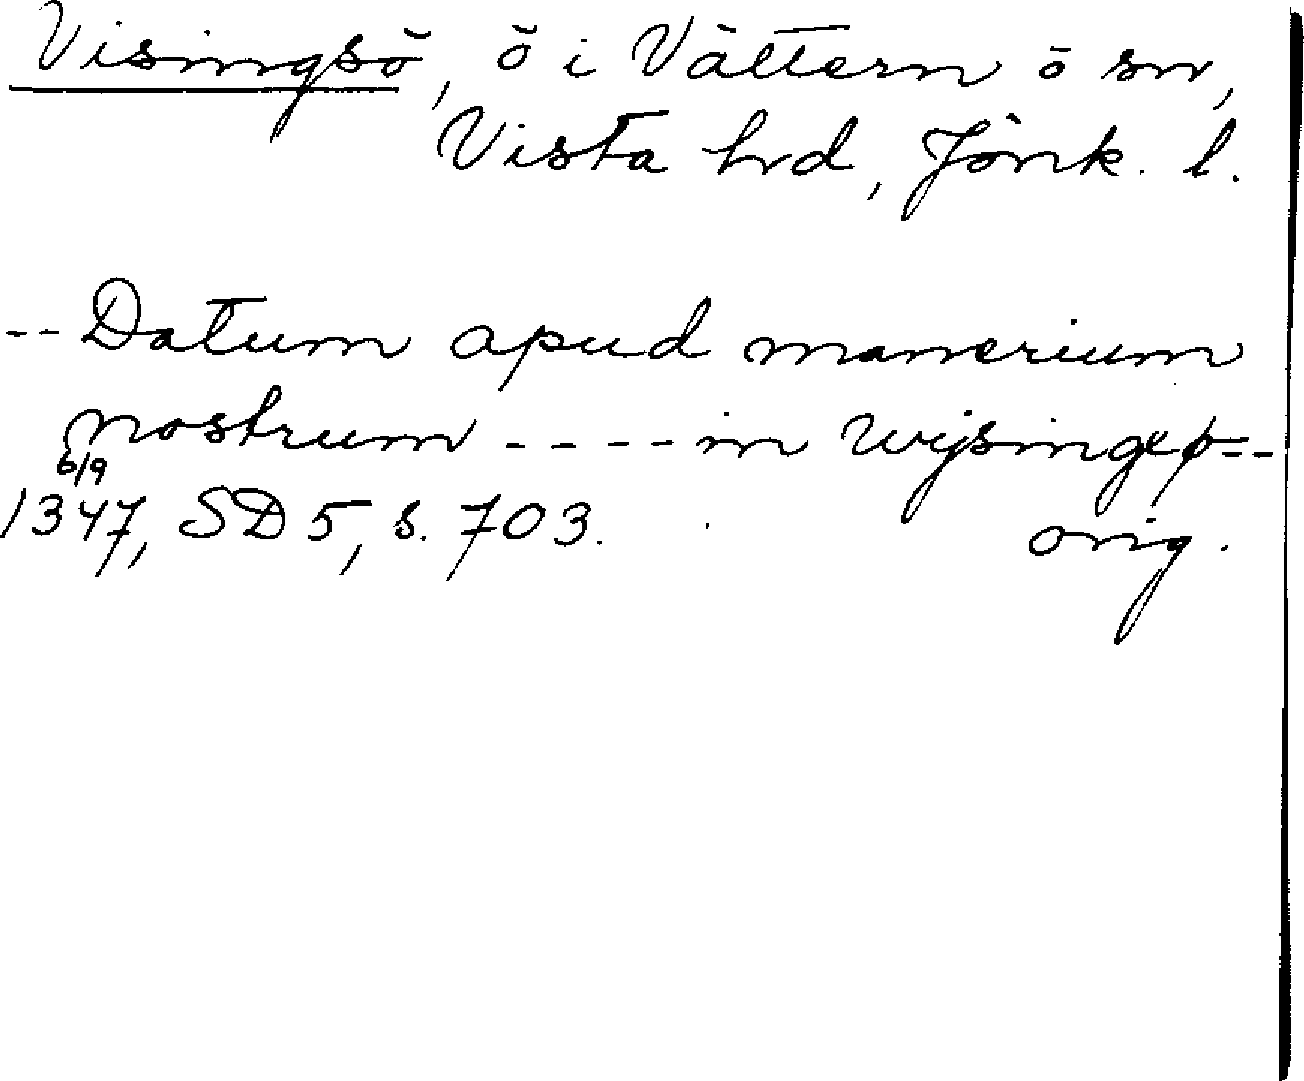 Visingsö, ö i Vättern o sn,
Vista hrd, Jönk. l.
-- Datum apud manerium
nostrum ---- in wijsingxø --
6/9
1347, SD 5, s. 703. orig.